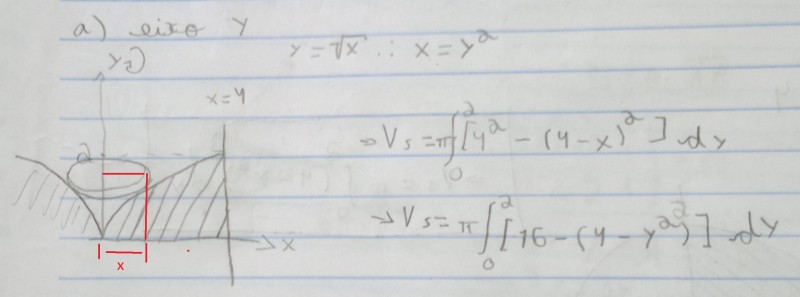 a) eixo Y
y = √x ∴ x = y²
y
x = 4
2
⇒ Vs = π∫₀² [4² - (4 - x)²] dy
x
→ Vs = π∫₀² [16 - (4 - y²)²] dy
x